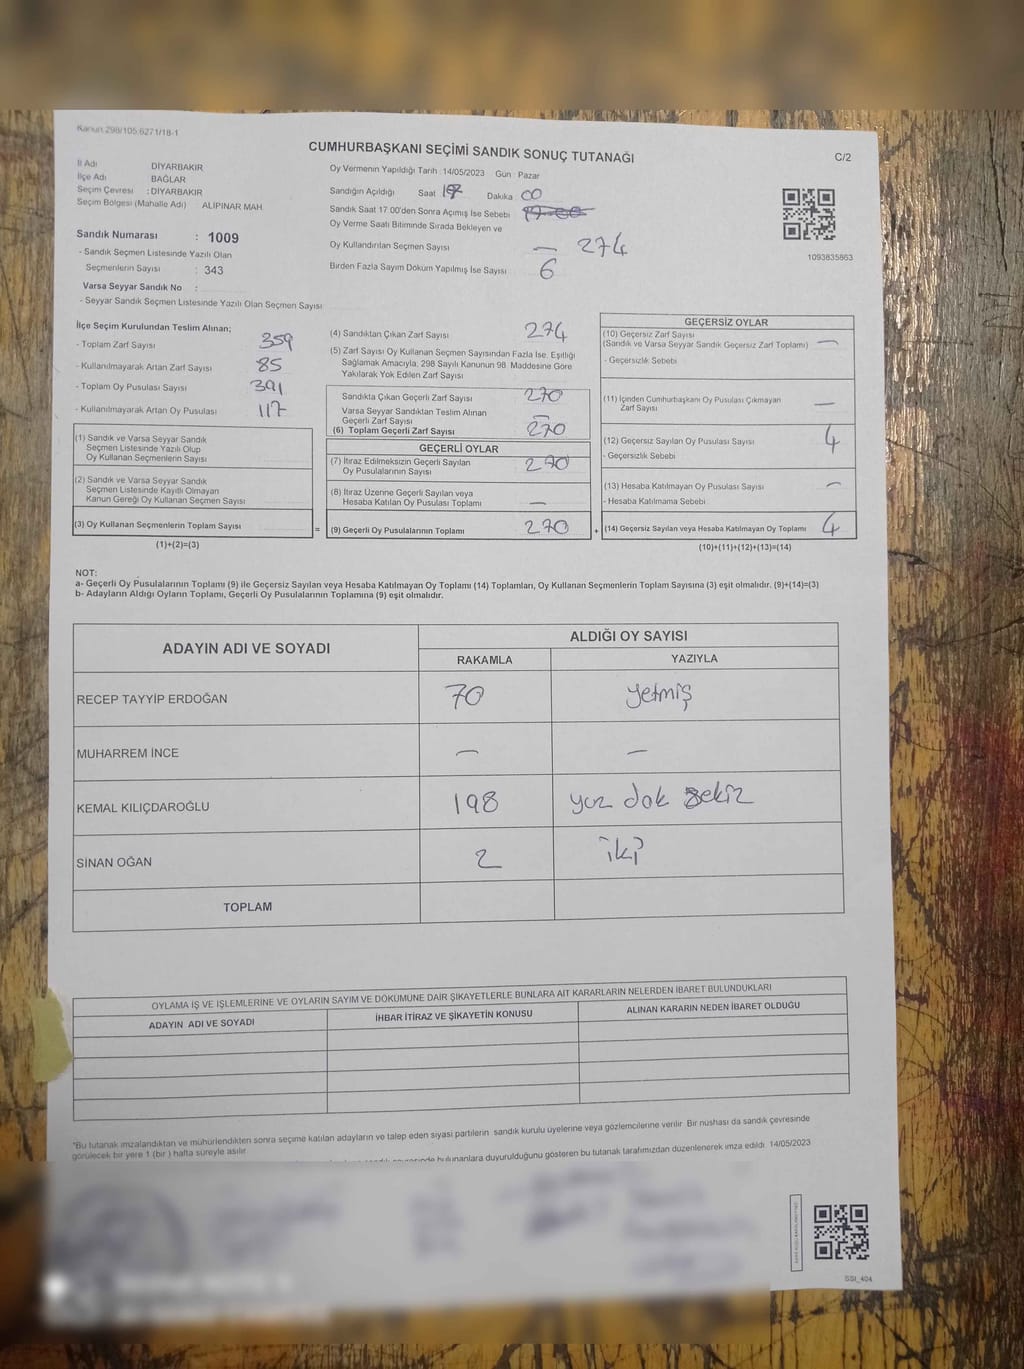 Kanun 298/105 6271/18-1
CUMHURBAŞKANI SEÇİMİ SANDIK SONUÇ TUTANAĞI
C/2
İl Adı DİYARBAKIR
İlçe Adı BAĞLAR
Seçim Çevresi : DİYARBAKIR
Seçim Bölgesi (Mahalle Adı) ALİPINAR MAH.
Sandık Numarası : 1009
- Sandık Seçmen Listesinde Yazılı Olan
Seçmenlerin Sayısı : 343
Varsa Seyyar Sandık No :
- Seyyar Sandık Seçmen Listesinde Yazılı Olan Seçmen Sayısı
Oy Vermenin Yapıldığı Tarih : 14/05/2023 Gün : Pazar
Sandığın Açıldığı Saat Dakika 00
Sandık Saat 17 00'den Sonra Açımış İse Sebebi
Oy Verme Saati Bitiminde Sırada Bekleyen ve
Oy Kullandırılan Seçmen Sayısı — 274
Birden Fazla Sayım Döküm Yapılmış İse Sayısı 6
1093835863
İlçe Seçim Kurulundan Teslim Alınan;
- Toplam Zarf Sayısı 359
- Kullanılmayarak Artan Zarf Sayısı 85
- Toplam Oy Pusulası Sayısı 391
- Kullanılmayarak Artan Oy Pusulası 117
(1) Sandık ve Varsa Seyyar Sandık
Seçmen Listesinde Yazılı Olup
Oy Kullanan Seçmenlerin Sayısı
(2) Sandık ve Varsa Seyyar Sandık
Seçmen Listesinde Kayıtlı Olmayan
Kanun Gereği Oy Kullanan Seçmen Sayısı
(3) Oy Kullanan Seçmenlerin Toplam Sayısı =
(1)+(2)=(3)
(4) Sandıktan Çıkan Zarf Sayısı 274
(5) Zarf Sayısı Oy Kullanan Seçmen Sayısından Fazla İse, Eşitliği
Sağlamak Amacıyla, 298 Sayılı Kanunun 98. Maddesine Göre
Yakılarak Yok Edilen Zarf Sayısı
Sandıkta Çıkan Geçerli Zarf Sayısı 270
Varsa Seyyar Sandıktan Teslim Alınan
Geçerli Zarf Sayısı —
(6) Toplam Geçerli Zarf Sayısı 270
GEÇERLİ OYLAR
(7) İtiraz Edilmeksizin Geçerli Sayılan
Oy Pusulalarının Sayısı 270
(8) İtiraz Üzerine Geçerli Sayılan veya
Hesaba Katılan Oy Pusulası Toplamı —
(9) Geçerli Oy Pusulalarının Toplamı 270 +
GEÇERSİZ OYLAR
(10) Geçersiz Zarf Sayısı
(Sandık ve Varsa Seyyar Sandık Geçersiz Zarf Toplamı) —
- Geçersizlik Sebebi
(11) İçinden Cumhurbaşkanı Oy Pusulası Çıkmayan
Zarf Sayısı —
(12) Geçersiz Sayılan Oy Pusulası Sayısı 4
- Geçersizlik Sebebi
(13) Hesaba Katılmayan Oy Pusulası Sayısı —
- Hesaba Katılmama Sebebi
(14) Geçersiz Sayılan veya Hesaba Katılmayan Oy Toplamı 4
(10)+(11)+(12)+(13)=(14)
NOT:
a- Geçerli Oy Pusulalarının Toplamı (9) ile Geçersiz Sayılan veya Hesaba Katılmayan Oy Toplamı (14) Toplamları, Oy Kullanan Seçmenlerin Toplam Sayısına (3) eşit olmalıdır. (9)+(14)=(3)
b- Adayların Aldığı Oyların Toplamı, Geçerli Oy Pusulalarının Toplamına (9) eşit olmalıdır.
ADAYIN ADI VE SOYADI ALDIĞI OY SAYISI
RAKAMLA YAZIYLA
RECEP TAYYİP ERDOĞAN 70 yetmiş
MUHARREM İNCE — —
KEMAL KILIÇDAROĞLU 198 yüz dok sekiz
SİNAN OĞAN 2 iki
TOPLAM
OYLAMA İŞ VE İŞLEMLERİNE VE OYLARIN SAYIM VE DÖKÜMÜNE DAİR ŞİKAYETLERLE BUNLARA AİT KARARLARIN NELERDEN İBARET BULUNDUKLARI
ADAYIN ADI VE SOYADI İHBAR İTİRAZ VE ŞİKAYETİN KONUSU ALINAN KARARIN NEDEN İBARET OLDUĞU
*Bu tutanak imzalandıktan ve mühürlendikten sonra seçime katılan adayların ve talep eden siyasi partilerin sandık kurulu üyelerine veya gözlemcilerine verilir. Bir nüshası da sandık çevresinde
görülecek bir yere 1 (bir) hafta süreyle asılır.
bulunanlara duyurulduğunu gösteren bu tutanak tarafımızdan düzenlenerek imza edildi. 14/05/2023
SSI_404